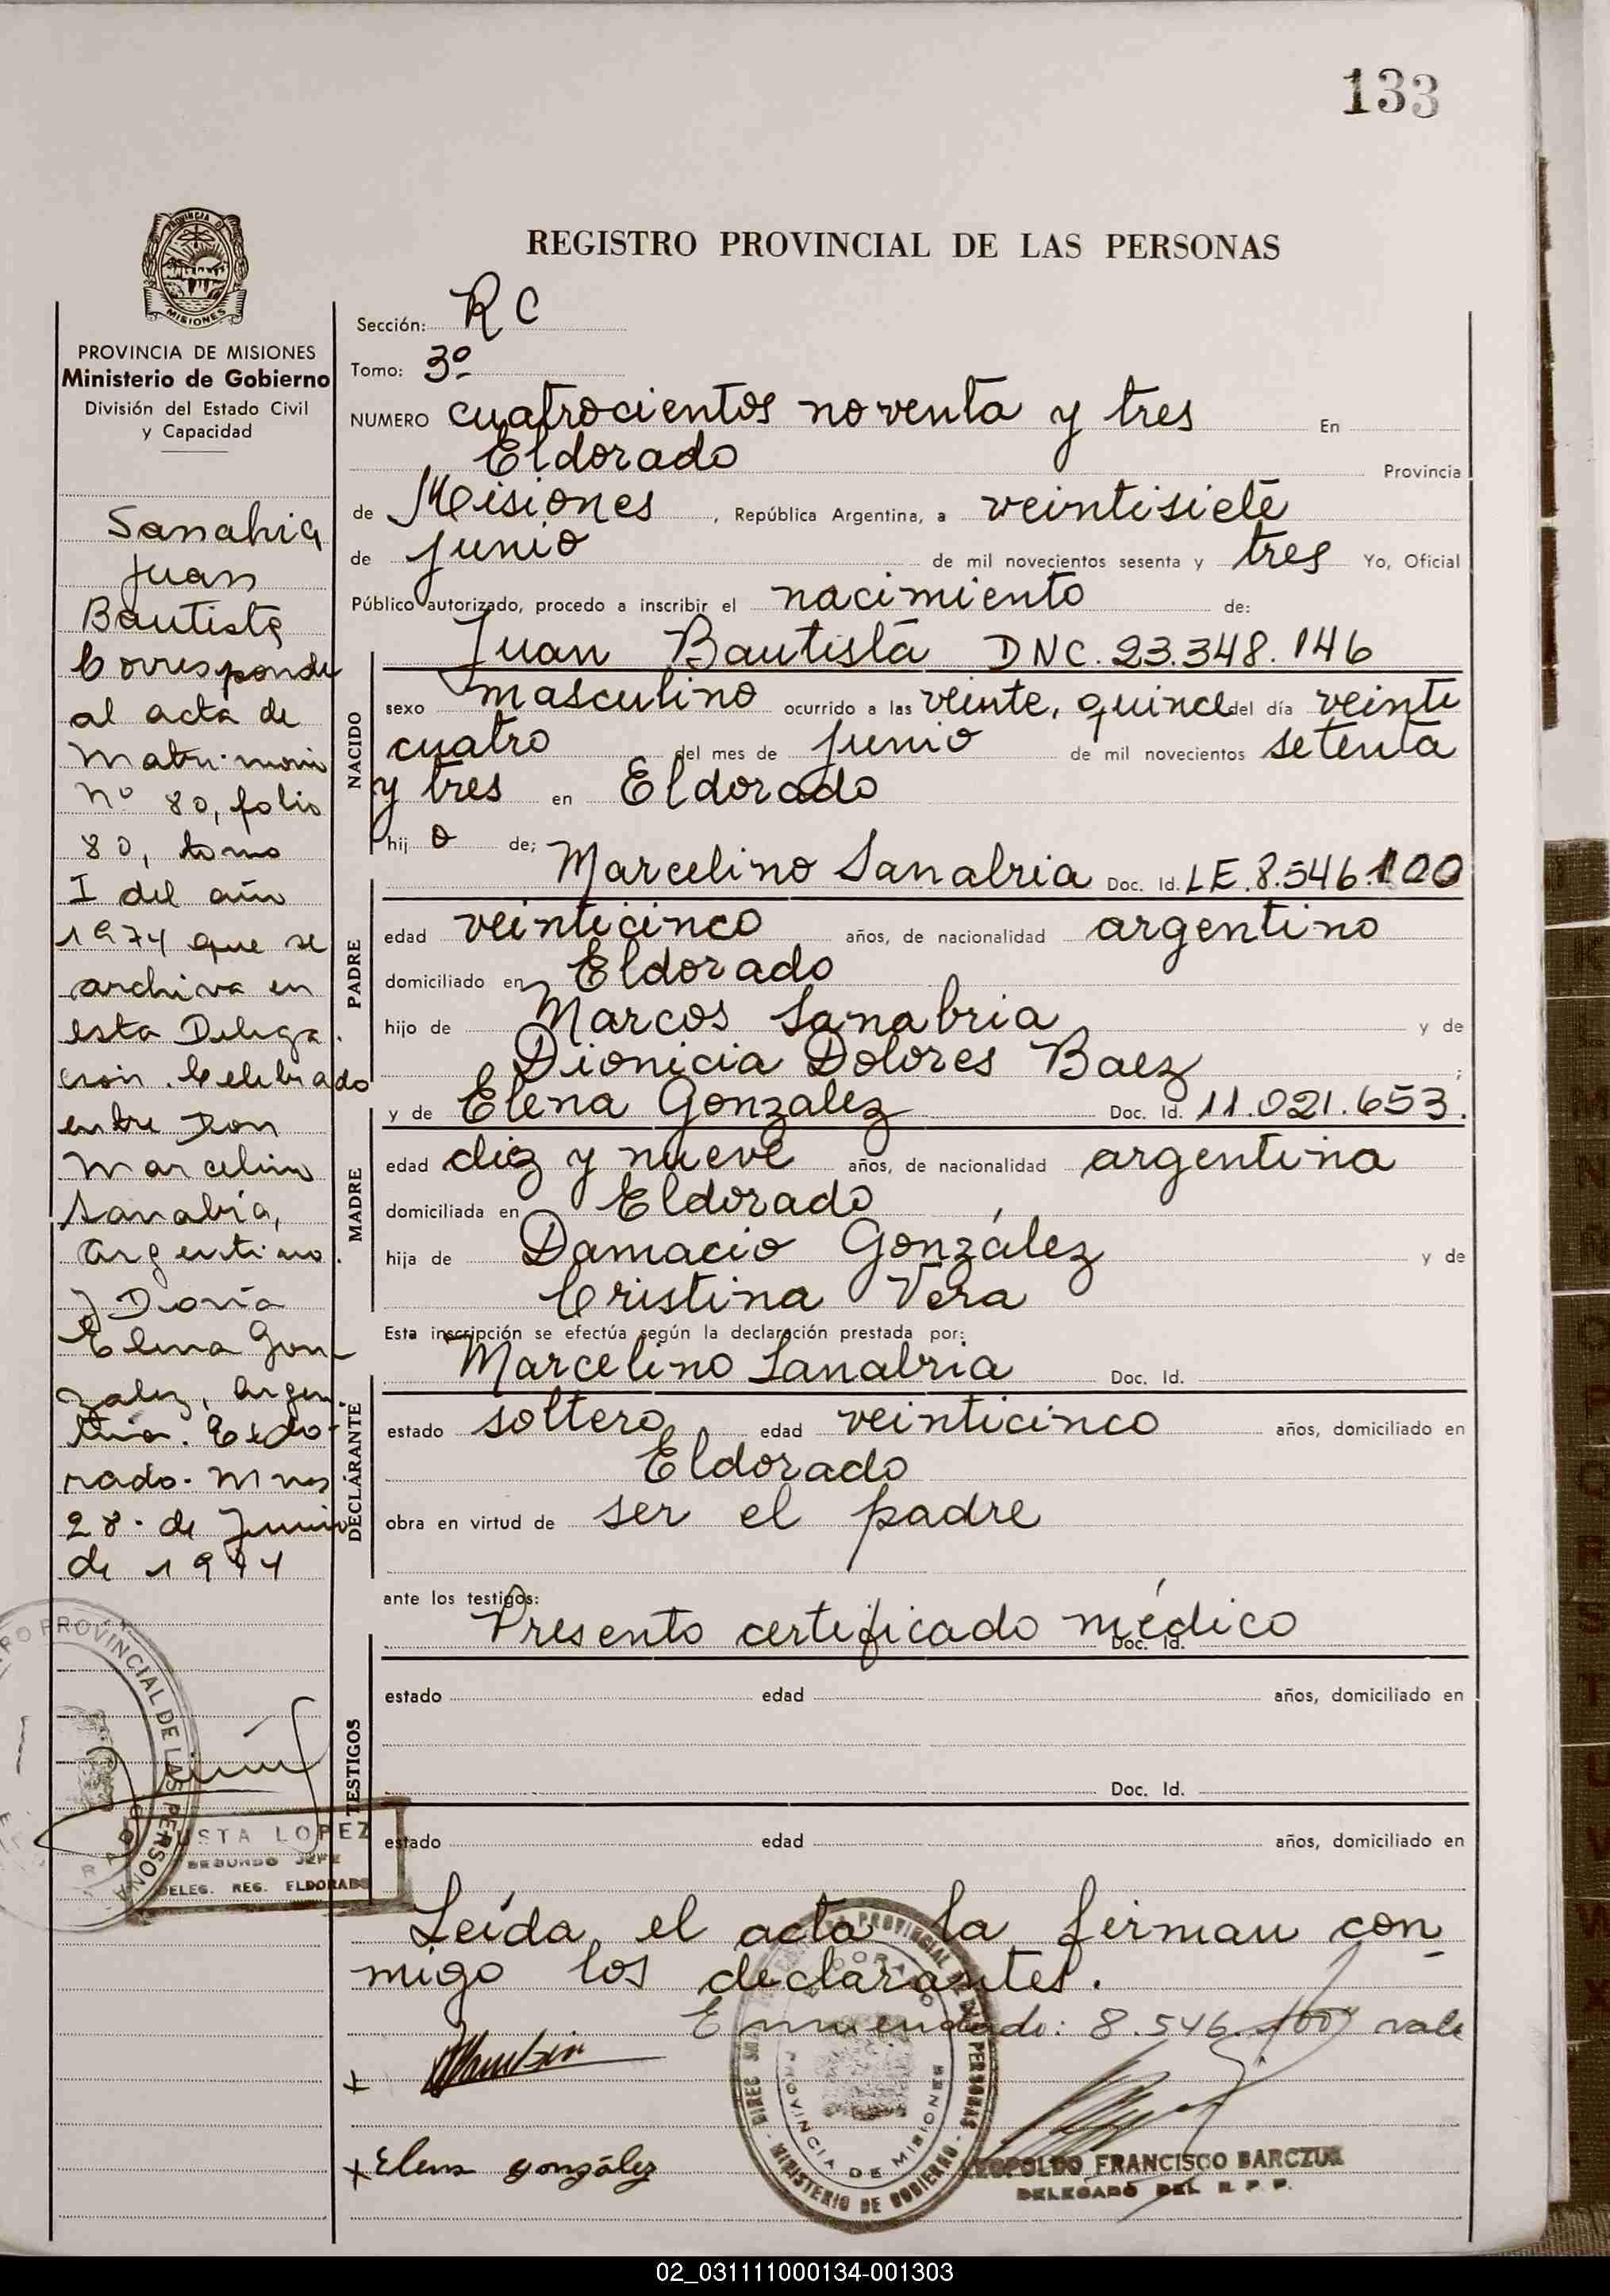 133
PROVINCIA DE
MISIONES
PROVINCIA DE MISIONES
Ministerio de Gobierno
División del Estado Civil
y Capacidad
Sanabria
Juan
Bautista
Corresponde
al acta de
Matrimonio
nº 80, folio
80, tomo
I del año
1974 que se
archiva en
esta Delega
ción. Celebrado
entre Don
Marcelino
Sanabria,
Argentino
y Doña
Elena Gon
zalez, Argen
tina. Eldo
rado. Mnes
28 de Junio
de 1974
REGISTRO PROVINCIAL DE LAS PERSONAS
Sección: R C
Tomo: 3º
NUMERO cuatrocientos noventa y tres En
Eldorado Provincia
de Misiones, República Argentina, a veintisiete
de junio de mil novecientos sesenta y tres Yo, Oficial
Público autorizado, procedo a inscribir el nacimiento de:
Juan Bautista DNC. 23.348.146
NACIDO
sexo masculino ocurrido a las veinte, quince del día veinti
cuatro del mes de junio de mil novecientos setenta
y tres en Eldorado
hij o de;
Marcelino Sanabria Doc. Id. LE. 8.546.100
PADRE
edad veinticinco años, de nacionalidad argentino
domiciliado en Eldorado
hijo de Marcos Sanabria y de
Dionicia Dolores Baez;
y de Elena Gonzalez Doc. Id. 11.021.653.
MADRE
edad diez y nueve años, de nacionalidad argentina
domiciliada en Eldorado
hija de Damacio González y de
Cristina Vera
Esta inscripción se efectúa según la declaración prestada por:
Marcelino Sanabria Doc. Id.
DECLARANTE
estado soltero edad veinticinco años, domiciliado en
Eldorado
obra en virtud de ser el padre
ante los testigos:
Presento certificado médico Doc. Id.
TESTIGOS
estado edad años, domiciliado en
Doc. Id.
estado edad años, domiciliado en
Leída el acta la firman con
migo los declarantes.
Enmendado: 8.546.100 vale
+
+ Elena gonzález
PROVINCIAL DE LAS PERSONAS
LOPEZ
SEGUNDO JEFE
DELEG. REG. ELDORADO
PROVINCIAL DE LAS PERSONAS
MINISTERIO DE GOBIERNO
ELDORADO
PROVINCIA DE MISIONES
LEOPOLDO FRANCISCO BARCZUK
DELEGADO DEL R. P. P.
02_031111000134-001303